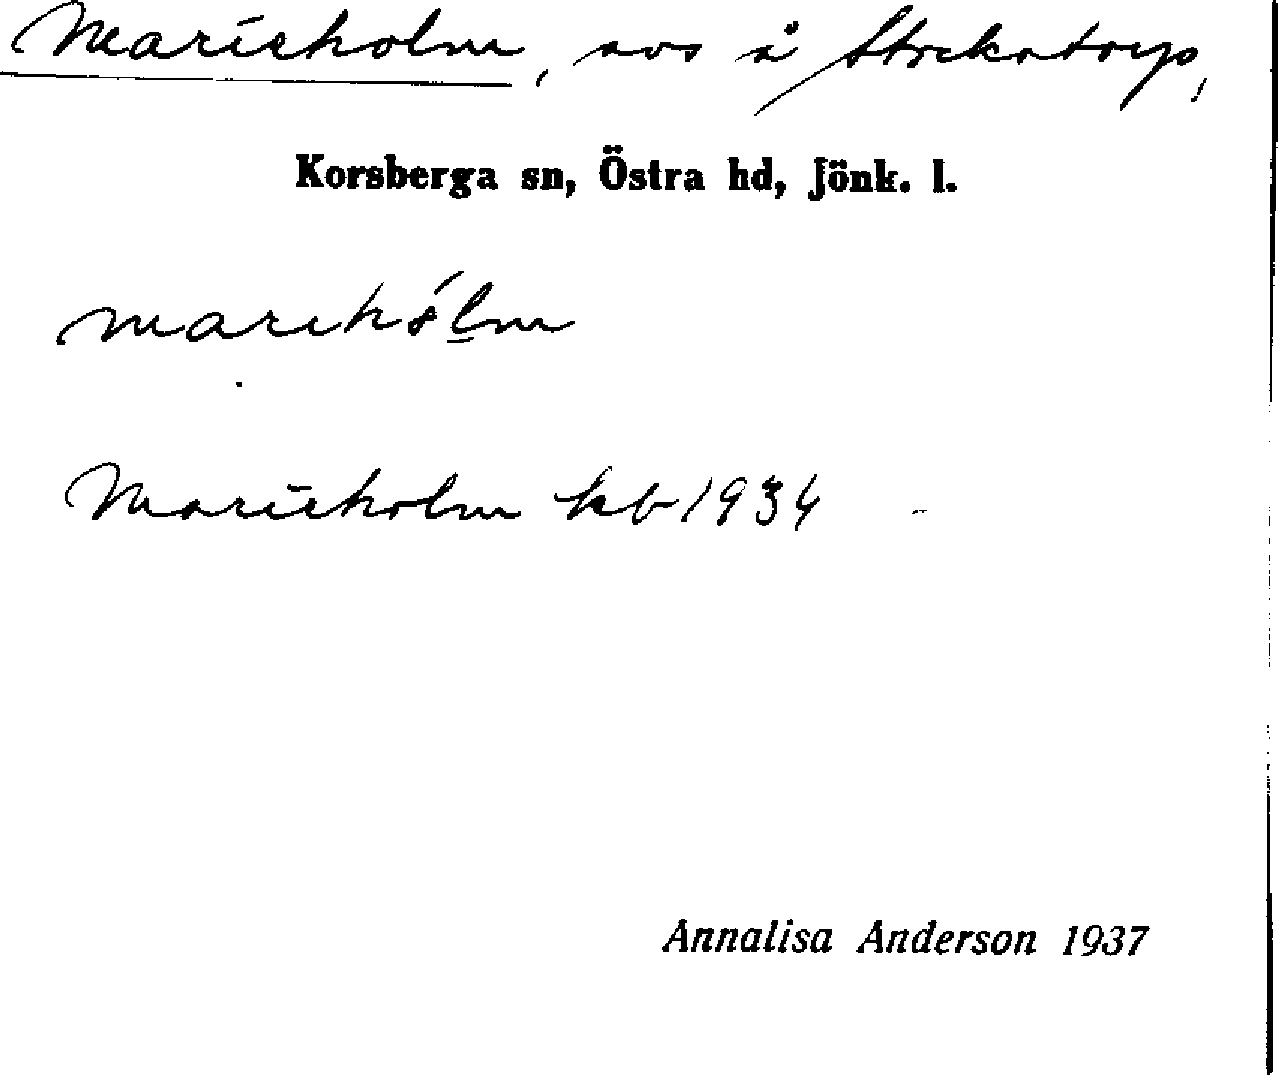 Marieholm, avs å Stockatorp,
Korsberga sn, Östra hd, Jönk. l.
marihólm
Marieholm kb 1934
Annalisa Anderson 1937